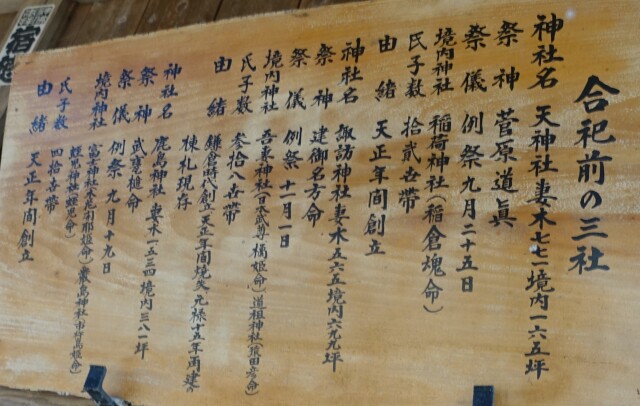 合祀前の三社
神社名 天神社妻木七七一境内一六五坪
祭神 菅原道眞
祭儀 例祭九月二十五日
境内神社 稲荷神社(稲倉魂命)
氏子数 拾貳世帯
由緒 天正年間創立
神社名 諏訪神社妻木五六五境内六九九坪
祭神 建御名方命
祭儀 例祭十一月一日
境内神社 吾妻神社(日本武尊 橘姫命)道祖神社(猿田彦命)
氏子数 参拾八世帯
由緒 鎌倉時代創立天正年間焼失元禄十五年再建の
棟札現存
神社名 鹿島神社妻木一五三四境内三八一坪
祭神 武甕槌命
祭儀 例祭九月十九日
境内神社 富士神社(木花咲耶姫命)厳島神社(市杵島姫命)
蛭児神社(蛭児命)
氏子数 四拾世帯
由緒 天正年間創立